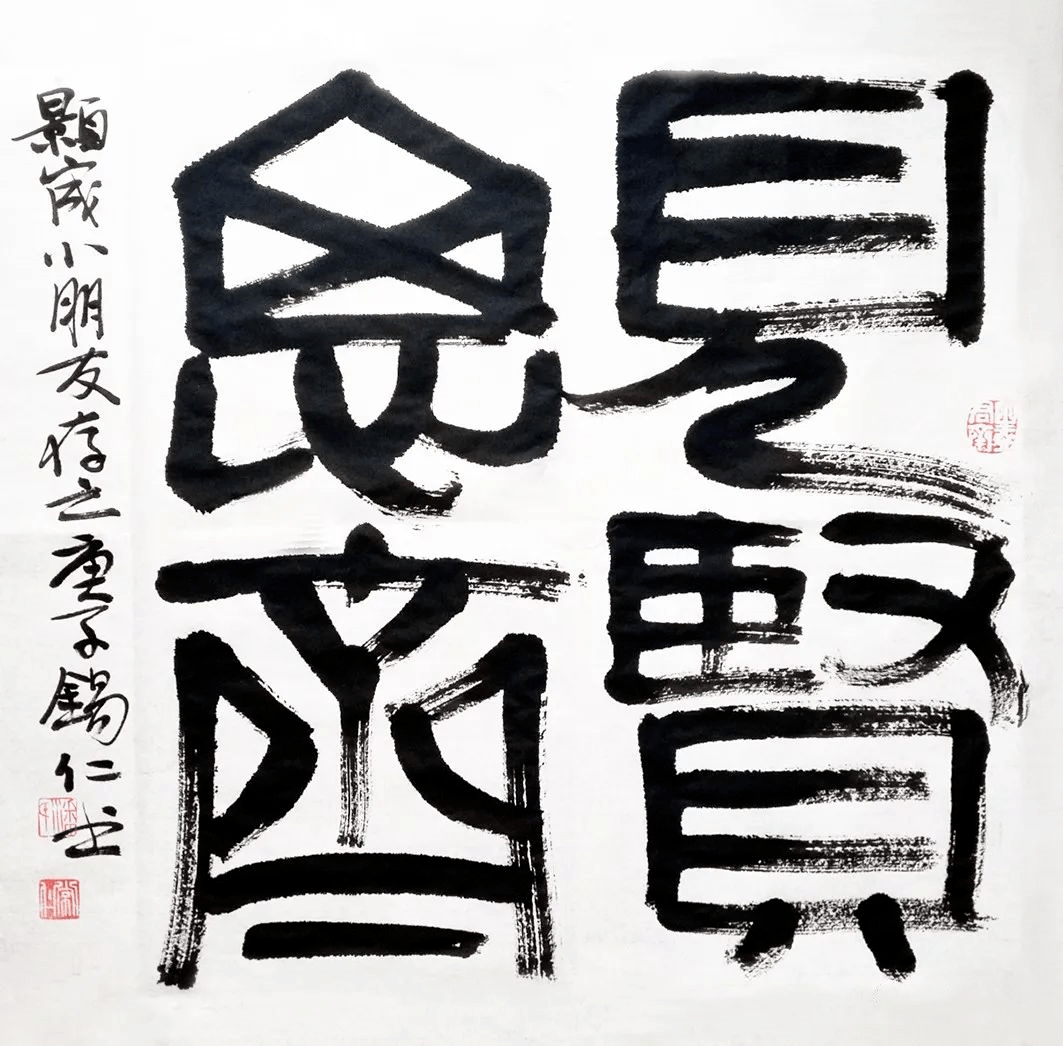 見賢
思齊
顥宬小朋友存之庚子錫仁书